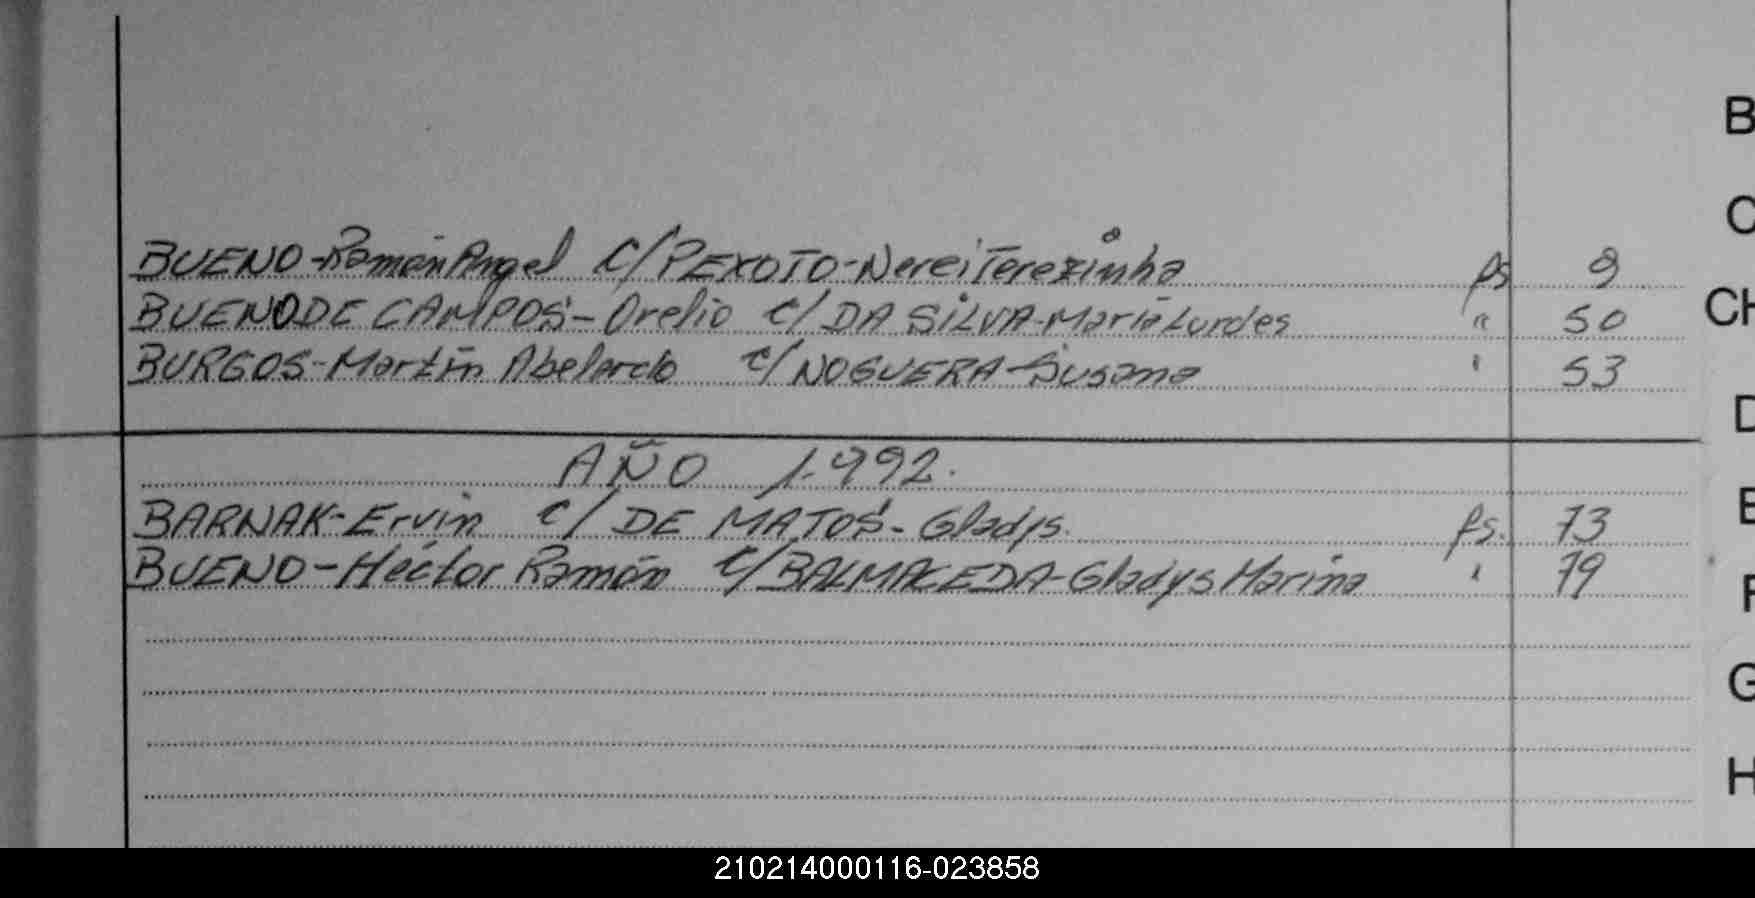 BUENO-Ramón Angel c/PEXOTO-Nerei Terezinha fs 9
BUENO DE CAMPOS-Orelio c/DA SILVA-María Lurdes " 50
BURGOS-Martín Abelardo c/NOGUERA-Susana " 53
AÑO 1.992.
BARNAK-Ervin c/ DE MATOS-Gladys. fs. 73
BUENO-Héctor Ramón c/BALMACEDA-Gladys Marina " 79
B
C
CH
D
E
F
G
H
210214000116-023858